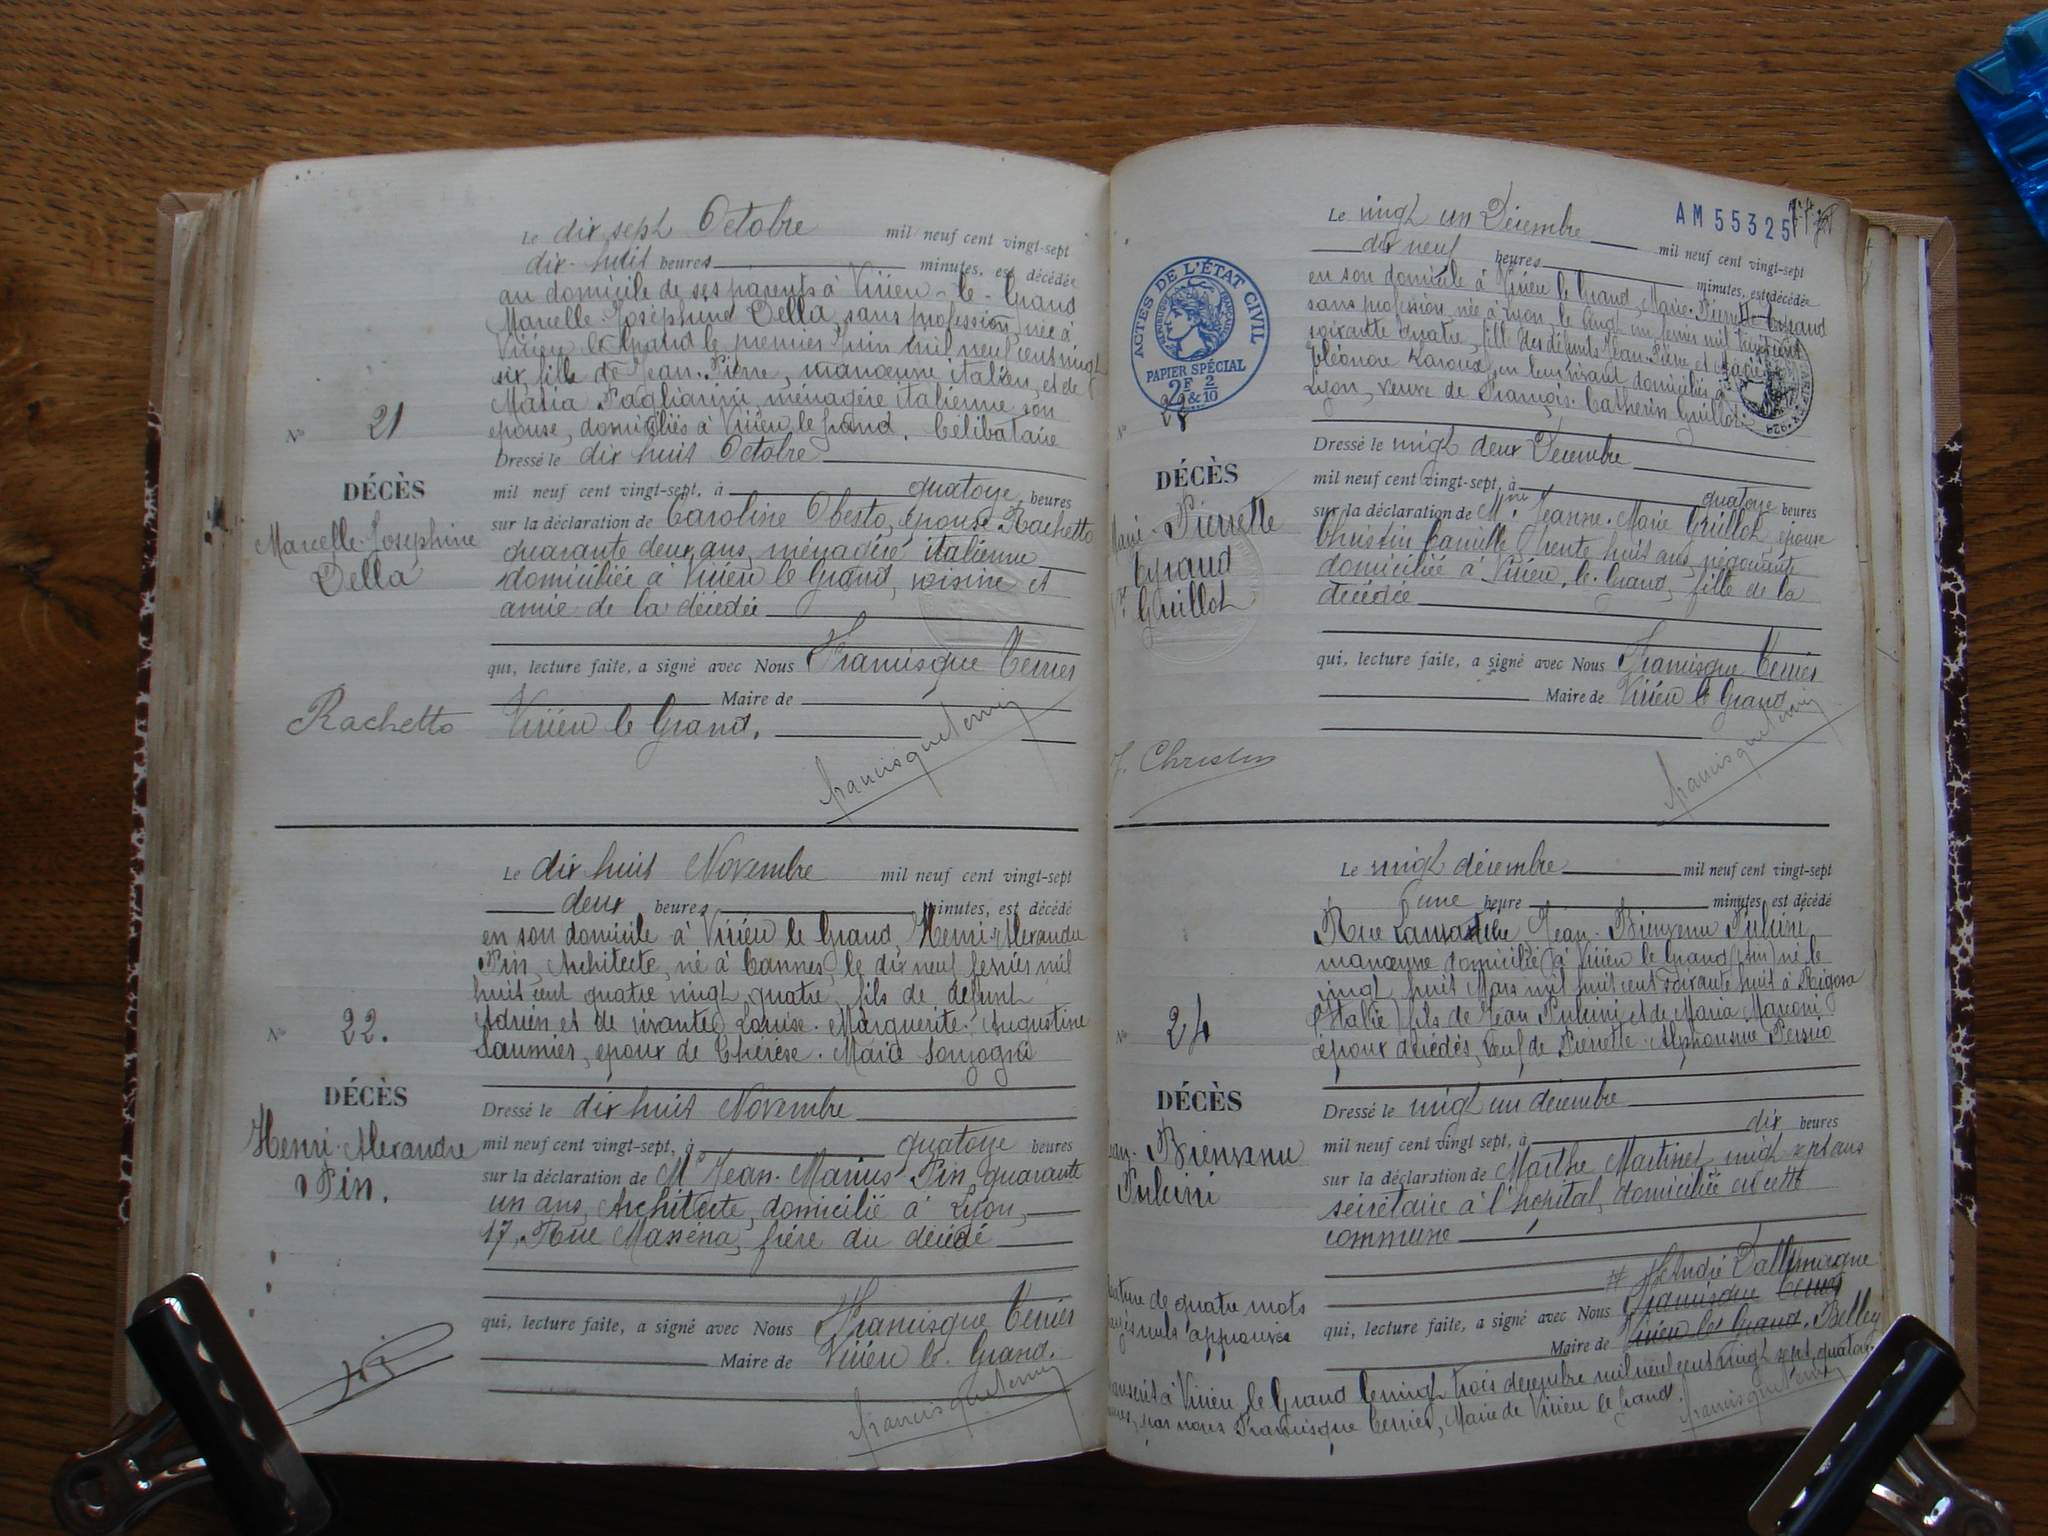 Le dix sept Octobre mil neuf cent vingt-sept
dix-huit heures minutes, est décédée
au domicile de ses parents à Virieu-le-Grand
Marcelle Joséphine Della, sans profession, née à
Virieu le Grand le premier Juin mil neuf cent vingt
six, fille de Jean-Pierre, manœuvre italien, et de
Maria Pagliarini, ménagère italienne son
épouse, domiciliés à Virieu le grand. Célibataire
N° 21
Dressé le dix huit Octobre
DÉCÈS
mil neuf cent vingt-sept, à quatorze heures
Marcelle-Josephine
Della
sur la déclaration de Caroline Obesto, épouse Rachetto
quarante deux ans, ménagère italienne
domiciliée à Virieu le Grand, voisine et
amie de la décédée
qui, lecture faite, a signé avec Nous Francisque Terrier
Maire de
Rachetto
Virieu le Grand.
Francisque Terrier
Le dix huit Novembre mil neuf cent vingt-sept
deux heures minutes, est décédé
en son domicile à Virieu le Grand, Henri-Alexandre
Pin, Architecte, né à Cannes, le dix neuf février mil
huit cent quatre vingt quatre, fils de défunt
Adrien et de vivante Louise-Marguerite-Augustine
Saumier, époux de Thérèse-Marie Sonzogni
N° 22.
DÉCÈS
Dressé le dix huit Novembre
Henri-Alexandre
Pin.
mil neuf cent vingt-sept, à quatorze heures
sur la déclaration de Mr Jean-Marius Pin, quarante
un ans, Architecte, domicilié à Lyon,
17, Rue Masséna, frère du décédé
qui, lecture faite, a signé avec Nous Francisque Terrier
Maire de Virieu le Grand.
Francisque Terrier
Le vingt un Décembre mil neuf cent vingt-sept
AM 55325
dix neuf heures minutes, est décédée
en son domicile à Virieu le Grand, Marie-Pierrette
sans profession, née à Lyon, le vingt un février mil huit cent
soixante quatre, fille des défunts Jean-Pierre et
Eléonore en leur vivant domiciliés à
Lyon, veuve de François-Catherin Guillot.
ACTES DE L'ÉTAT CIVIL
PAPIER SPÉCIAL
2F & 2/10
N°
Dressé le vingt deux Décembre
DÉCÈS
mil neuf cent vingt-sept, à quatorze heures
Pierrette
Guillot
sur la déclaration de Mme Jeanne-Marie Guillot, épouse
Christin Camille, trente huit ans, négociante
domiciliée à Virieu-le-Grand, fille de la
décédée
qui, lecture faite, a signé avec Nous Francisque Terrier
Maire de Virieu le Grand
J. Christin
Francisque Terrier
Le vingt décembre mil neuf cent vingt-sept
une heure minutes est décédé
Rue Lamartine Jean-Bienvenu Pulcini,
manœuvre domicilié à Virieu le Grand (Ain) né le
vingt huit Mars mil huit cent soixante huit à Rigosa
(Italie) fils de Jean Pulcini et de Maria Marconi
époux décédés, veuf de Pierrette-Alphonsine
N° 24
DÉCÈS
Dressé le vingt un décembre
Bienvenu
Pulcini
mil neuf cent vingt sept, à dix heures
sur la déclaration de Marthe Martinet vingt sept ans
secrétaire à l'hopital, domiciliée en cette
commune
de quatre mots
nuls approuvée
# André Dallemagne
qui, lecture faite, a signé avec Nous Francisque Terrier
Maire de Virieu le Grand. Belley
à Virieu le Grand le vingt trois décembre mil neuf cent vingt sept, quatorze
par nous Francisque Terrier, Maire de Virieu le grand.
Francisque Terrier